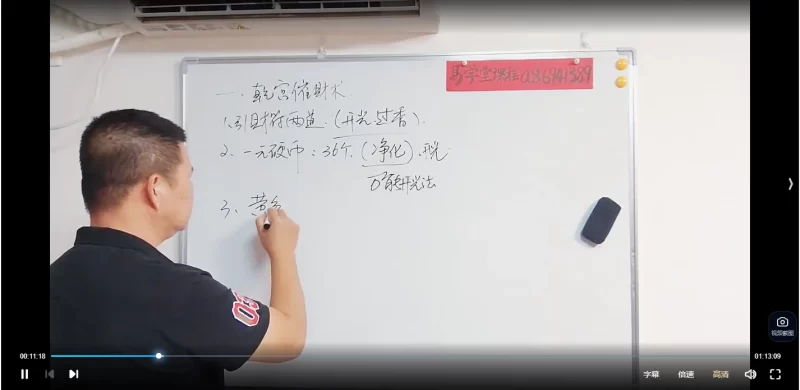 易学堂课程
一、乾宫催财术
1、引财符两道（开光过香）.
2、一元硬币：36个.（净化）.开光.
万能开光法
3、黄
00:11:18
01:13:09
字幕
倍速
高清
视频截图